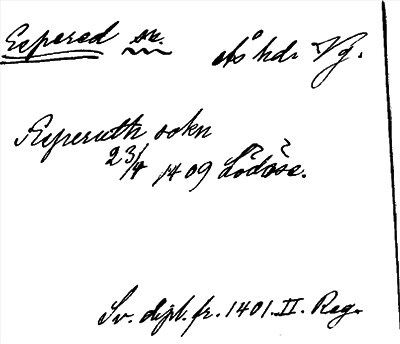 Espered sn. Ås hdr Vg.
Æsperuth sokn
23/4 1409 Lödöse.
Sv. dipl. fr. 1401. II. Reg.